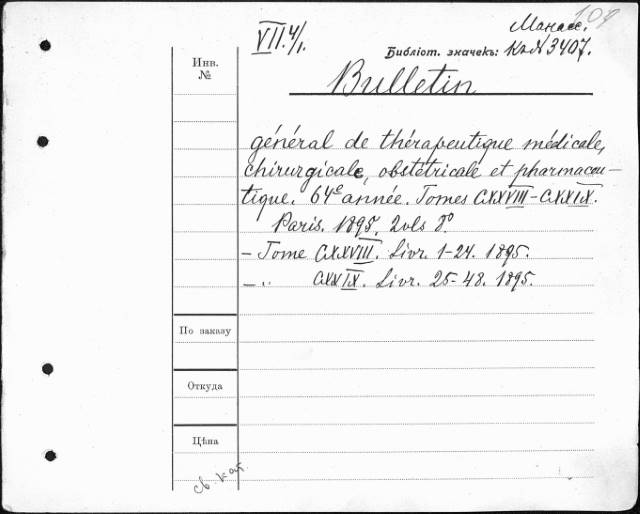 109
VII.4/1.
Манасс.
Библіот. значекъ: К.№3407.
Инв.
№
Bulletin
général de thérapeutique médicale,
chirurgicale, obstétricale et pharmaceu-
tique. 64e année. Tomes CXXVIII-CXXIX.
Paris. 1895. 2 vls 8º
- Tome CXXVIII. Livr. 1-24. 1895.
- „ CXXIX. Livr. 25-48. 1895.
По заказу
Откуда
Цѣна
св. кат.